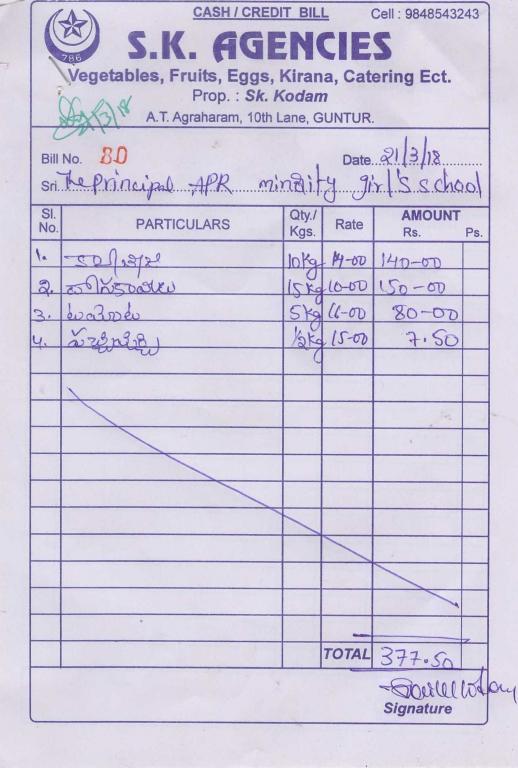 CASH / CREDIT BILL Cell : 9848543243
786
S.K. AGENCIES
Vegetables, Fruits, Eggs, Kirana, Catering Ect.
Prop. : Sk. Kodam
A.T. Agraharam, 10th Lane, GUNTUR.
21/3/18
Bill No. 80 Date 21/3/18
Sri. The Principal APR minority girl's school
Sl. No. PARTICULARS Qty./ Kgs. Rate AMOUNT Rs. Ps.
1. 10kg 14-00 140-00
2. 15kg 10-00 150-00
3. టమోటా 5kg 80-00
4. పచ్చిమిర్చి 1/2kg 15-00 7.50
TOTAL 377.50
Signature